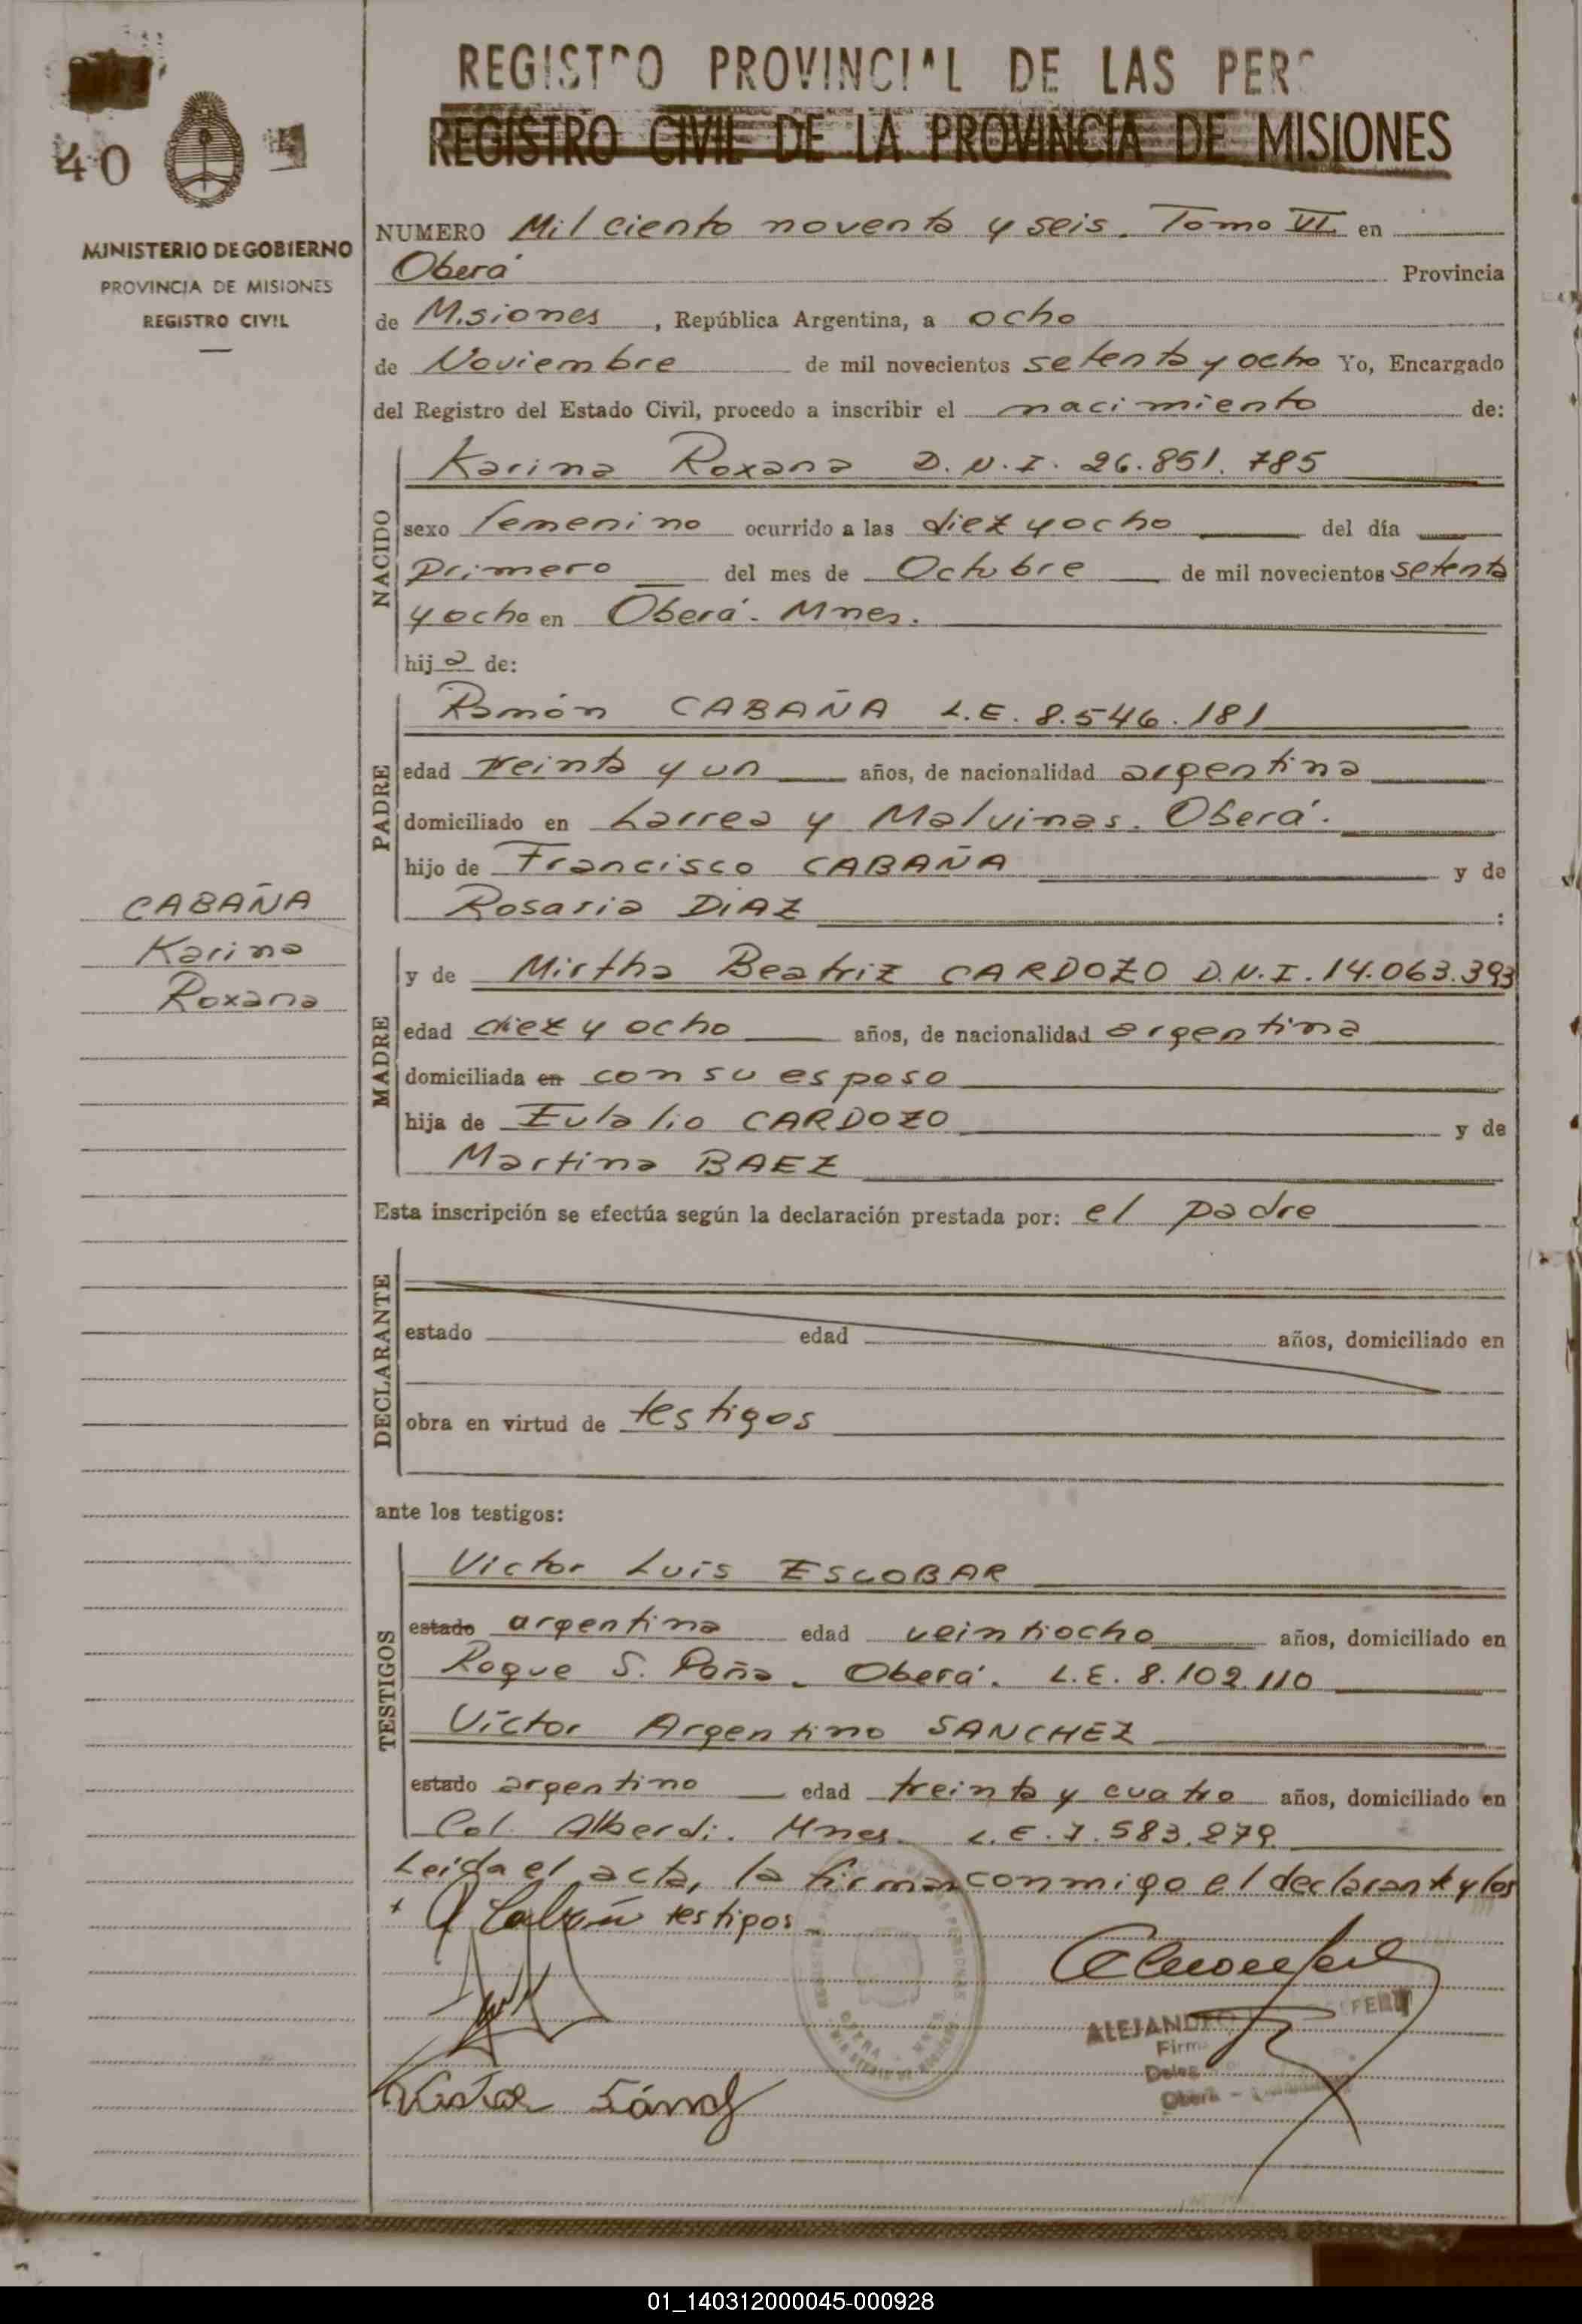 REGIST O PROVINCI L DE LAS PER
REGISTRO CIVIL DE LA PROVINCIA DE MISIONES
40
MINISTERIO DE GOBIERNO
PROVINCIA DE MISIONES
REGISTRO CIVIL
NUMERO Mil ciento noventa y seis. Tomo VI. en
Oberá Provincia
de Misiones, República Argentina, a ocho
de Noviembre de mil novecientos setenta y ocho Yo, Encargado
del Registro del Estado Civil, procedo a inscribir el nacimiento de:
NACIDO
Karina Roxana D.N.I. 26.851.785
sexo femenino ocurrido a las diez y ocho del día
primero del mes de Octubre de mil novecientos setenta
y ocho en Oberá. Mnes.
hija de:
PADRE
Ramón CABAÑA L.E. 8.546.181
edad treinta y un años, de nacionalidad argentina
domiciliado en Larrea y Malvinas. Oberá.
hijo de Francisco CABAÑA y de
Rosaria DIAZ :
CABAÑA
Karina
Roxana
MADRE
y de Mirtha Beatriz CARDOZO D.N.I. 14.063.393
edad diez y ocho años, de nacionalidad argentina
domiciliada en con su esposo
hija de Eulalio CARDOZO y de
Martina BAEZ
Esta inscripción se efectúa según la declaración prestada por: el padre
DECLARANTE
estado edad años, domiciliado en
obra en virtud de testigos
ante los testigos:
TESTIGOS
Victor Luis ESCOBAR
estado argentina edad veintiocho años, domiciliado en
Roque S. Peña. Oberá. L.E. 8.102.110
Víctor Argentino SANCHEZ
estado argentino edad treinta y cuatro años, domiciliado en
Col. Alberdi. Mnes. L.E. 7.583.279.
Leida el acta, la firman conmigo el declarante y los
testigos.
ALEJANDRO
Firm
Deleg
Oberá -
Victor Sánch
01_140312000045-000928